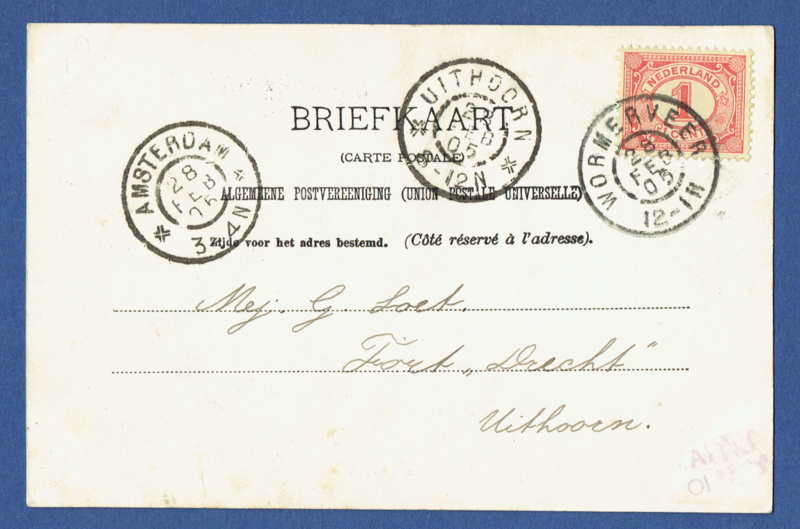 NEDERLAND
1
CENT
WORMERVEER
28
FEB
05
12-1N
UITHOORN
FEB
05
8-12N
AMSTERDAM
28
FEB
05
3-4N
BRIEFKAART
(CARTE POSTALE)
ALGEMEENE POSTVEREENIGING (UNION POSTALE UNIVERSELLE)
Zijde voor het adres bestemd. (Côté réservé à l'adresse).
Mej. G. Loet.
Fort „Drecht"
Uithoorn.